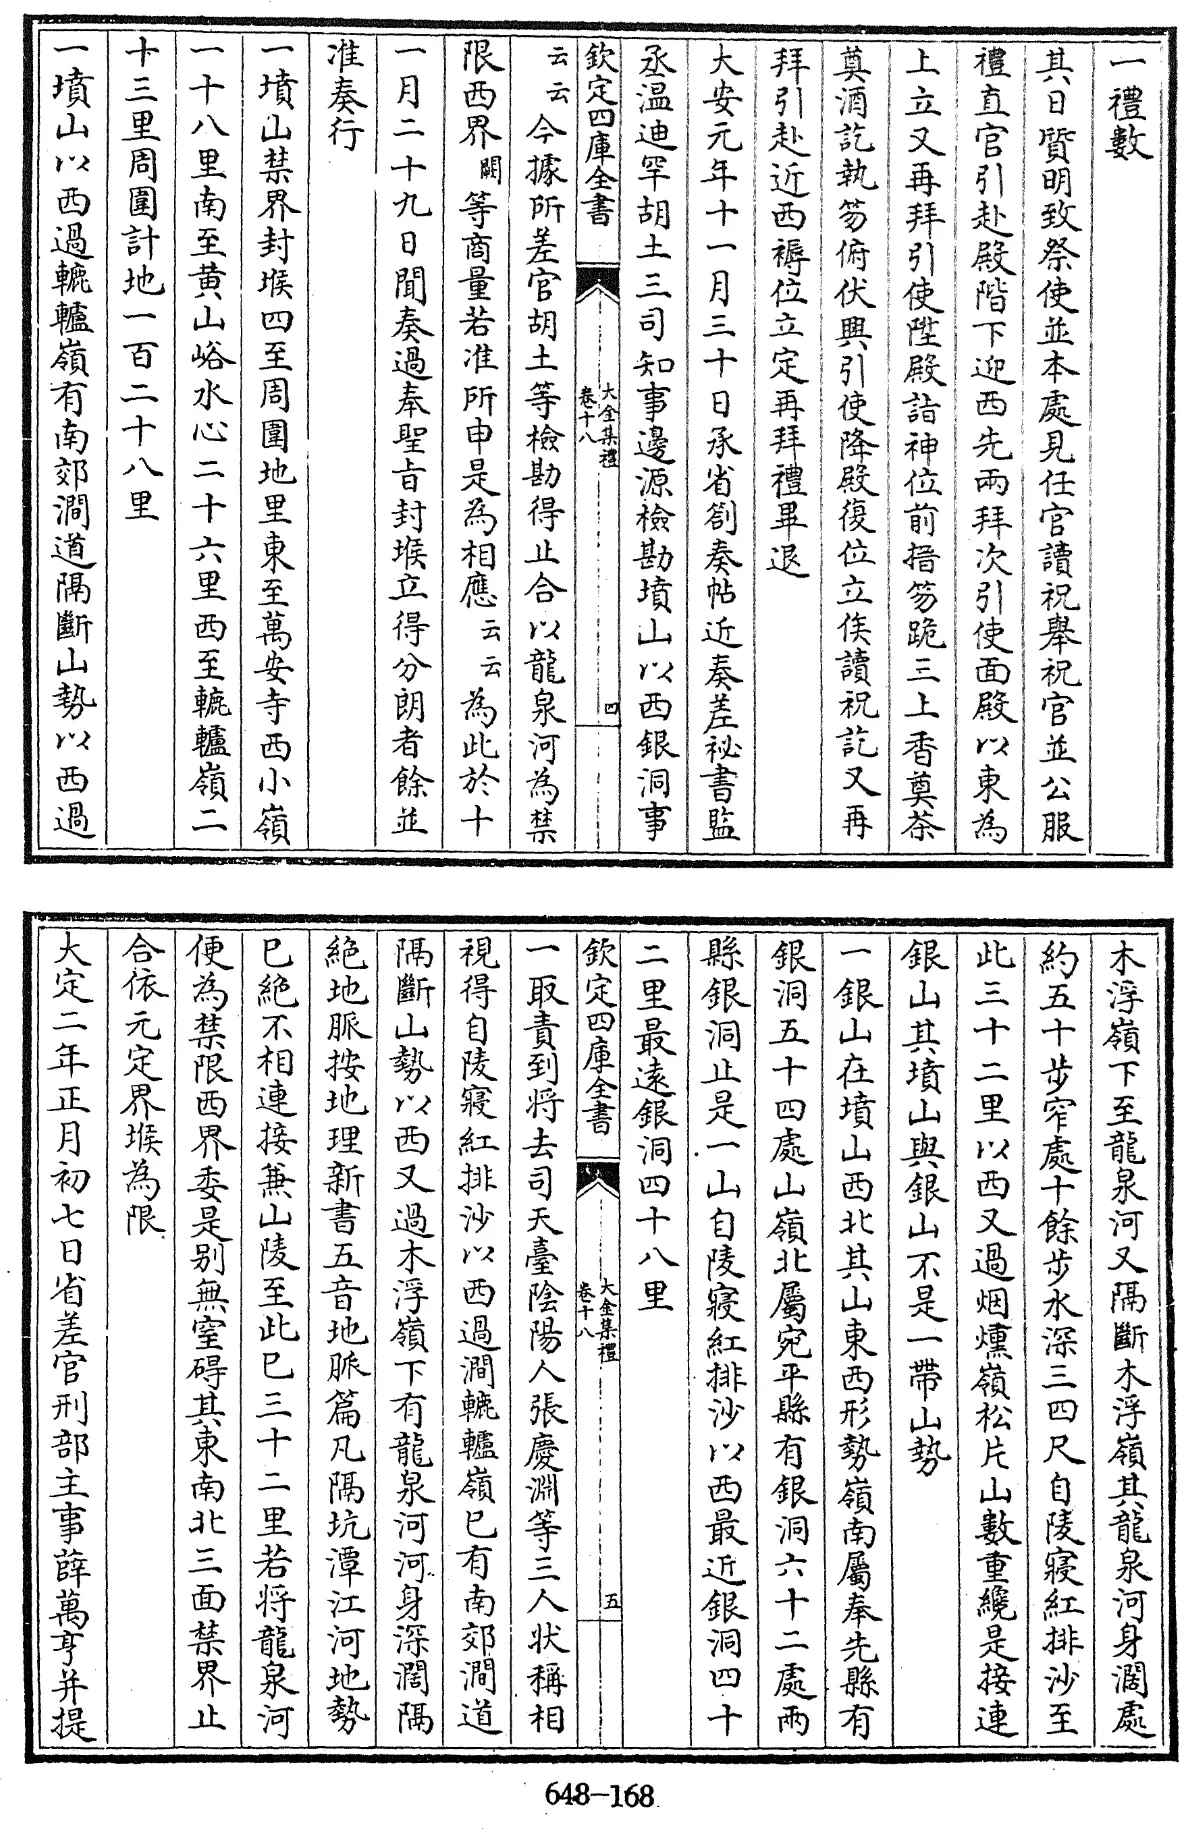 一禮數
其日質明致祭使並本處見任官讀祝舉祝官並公服
禮直官引赴殿階下迎西先兩拜次引使面殿以東為
上立又再拜引使陞殿詣神位前搢笏跪三上香奠茶
奠酒訖執笏俯伏興引使降殿復位立俟讀祝訖又再
拜引赴近西褥位立定再拜禮畢退
大安元年十一月三十日承省劄奏帖近奏差祕書監
丞溫迪罕胡土三司知事邊源檢勘墳山以西銀洞事
欽定四庫全書
大金集禮
卷十八
四
云云今據所差官胡土等檢勘得止合以龍泉河為禁
限西界闕等商量若准所申是為相應云云為此於十
一月二十九日聞奏過奉聖旨封堠立得分朗者餘並
准奏行
一墳山禁界封堠四至周圍地里東至萬安寺西小嶺
一十八里南至黄山峪水心二十六里西至轆轤嶺二
十三里周圍計地一百二十八里
一墳山以西過轆轤嶺有南郊澗道隔斷山勢以西過
木浮嶺下至龍泉河又隔斷木浮嶺其龍泉河身濶處
約五十步窄處十餘步水深三四尺自陵寢紅排沙至
此三十二里以西又過烟燻嶺松片山數重纔是接連
銀山其墳山與銀山不是一帶山勢
一銀山在墳山西北其山東西形勢嶺南屬奉先縣有
銀洞五十四處山嶺北屬宛平縣有銀洞六十二處兩
縣銀洞止是一山自陵寢紅排沙以西最近銀洞四十
二里最遠銀洞四十八里
欽定四庫全書
大金集禮
卷十八
五
一取責到將去司天臺陰陽人張慶淵等三人狀稱相
視得自陵寢紅排沙以西過澗轆轤嶺已有南郊澗道
隔斷山勢以西又過木浮嶺下有龍泉河河身深濶隔
絶地脈按地理新書五音地脈篇凡隔坑潭江河地勢
已絶不相連接兼山陵至此已三十二里若將龍泉河
便為禁限西界委是别無窒碍其東南北三面禁界止
合依元定界堠為限
大定二年正月初七日省差官刑部主事薛萬亨并提
648-168